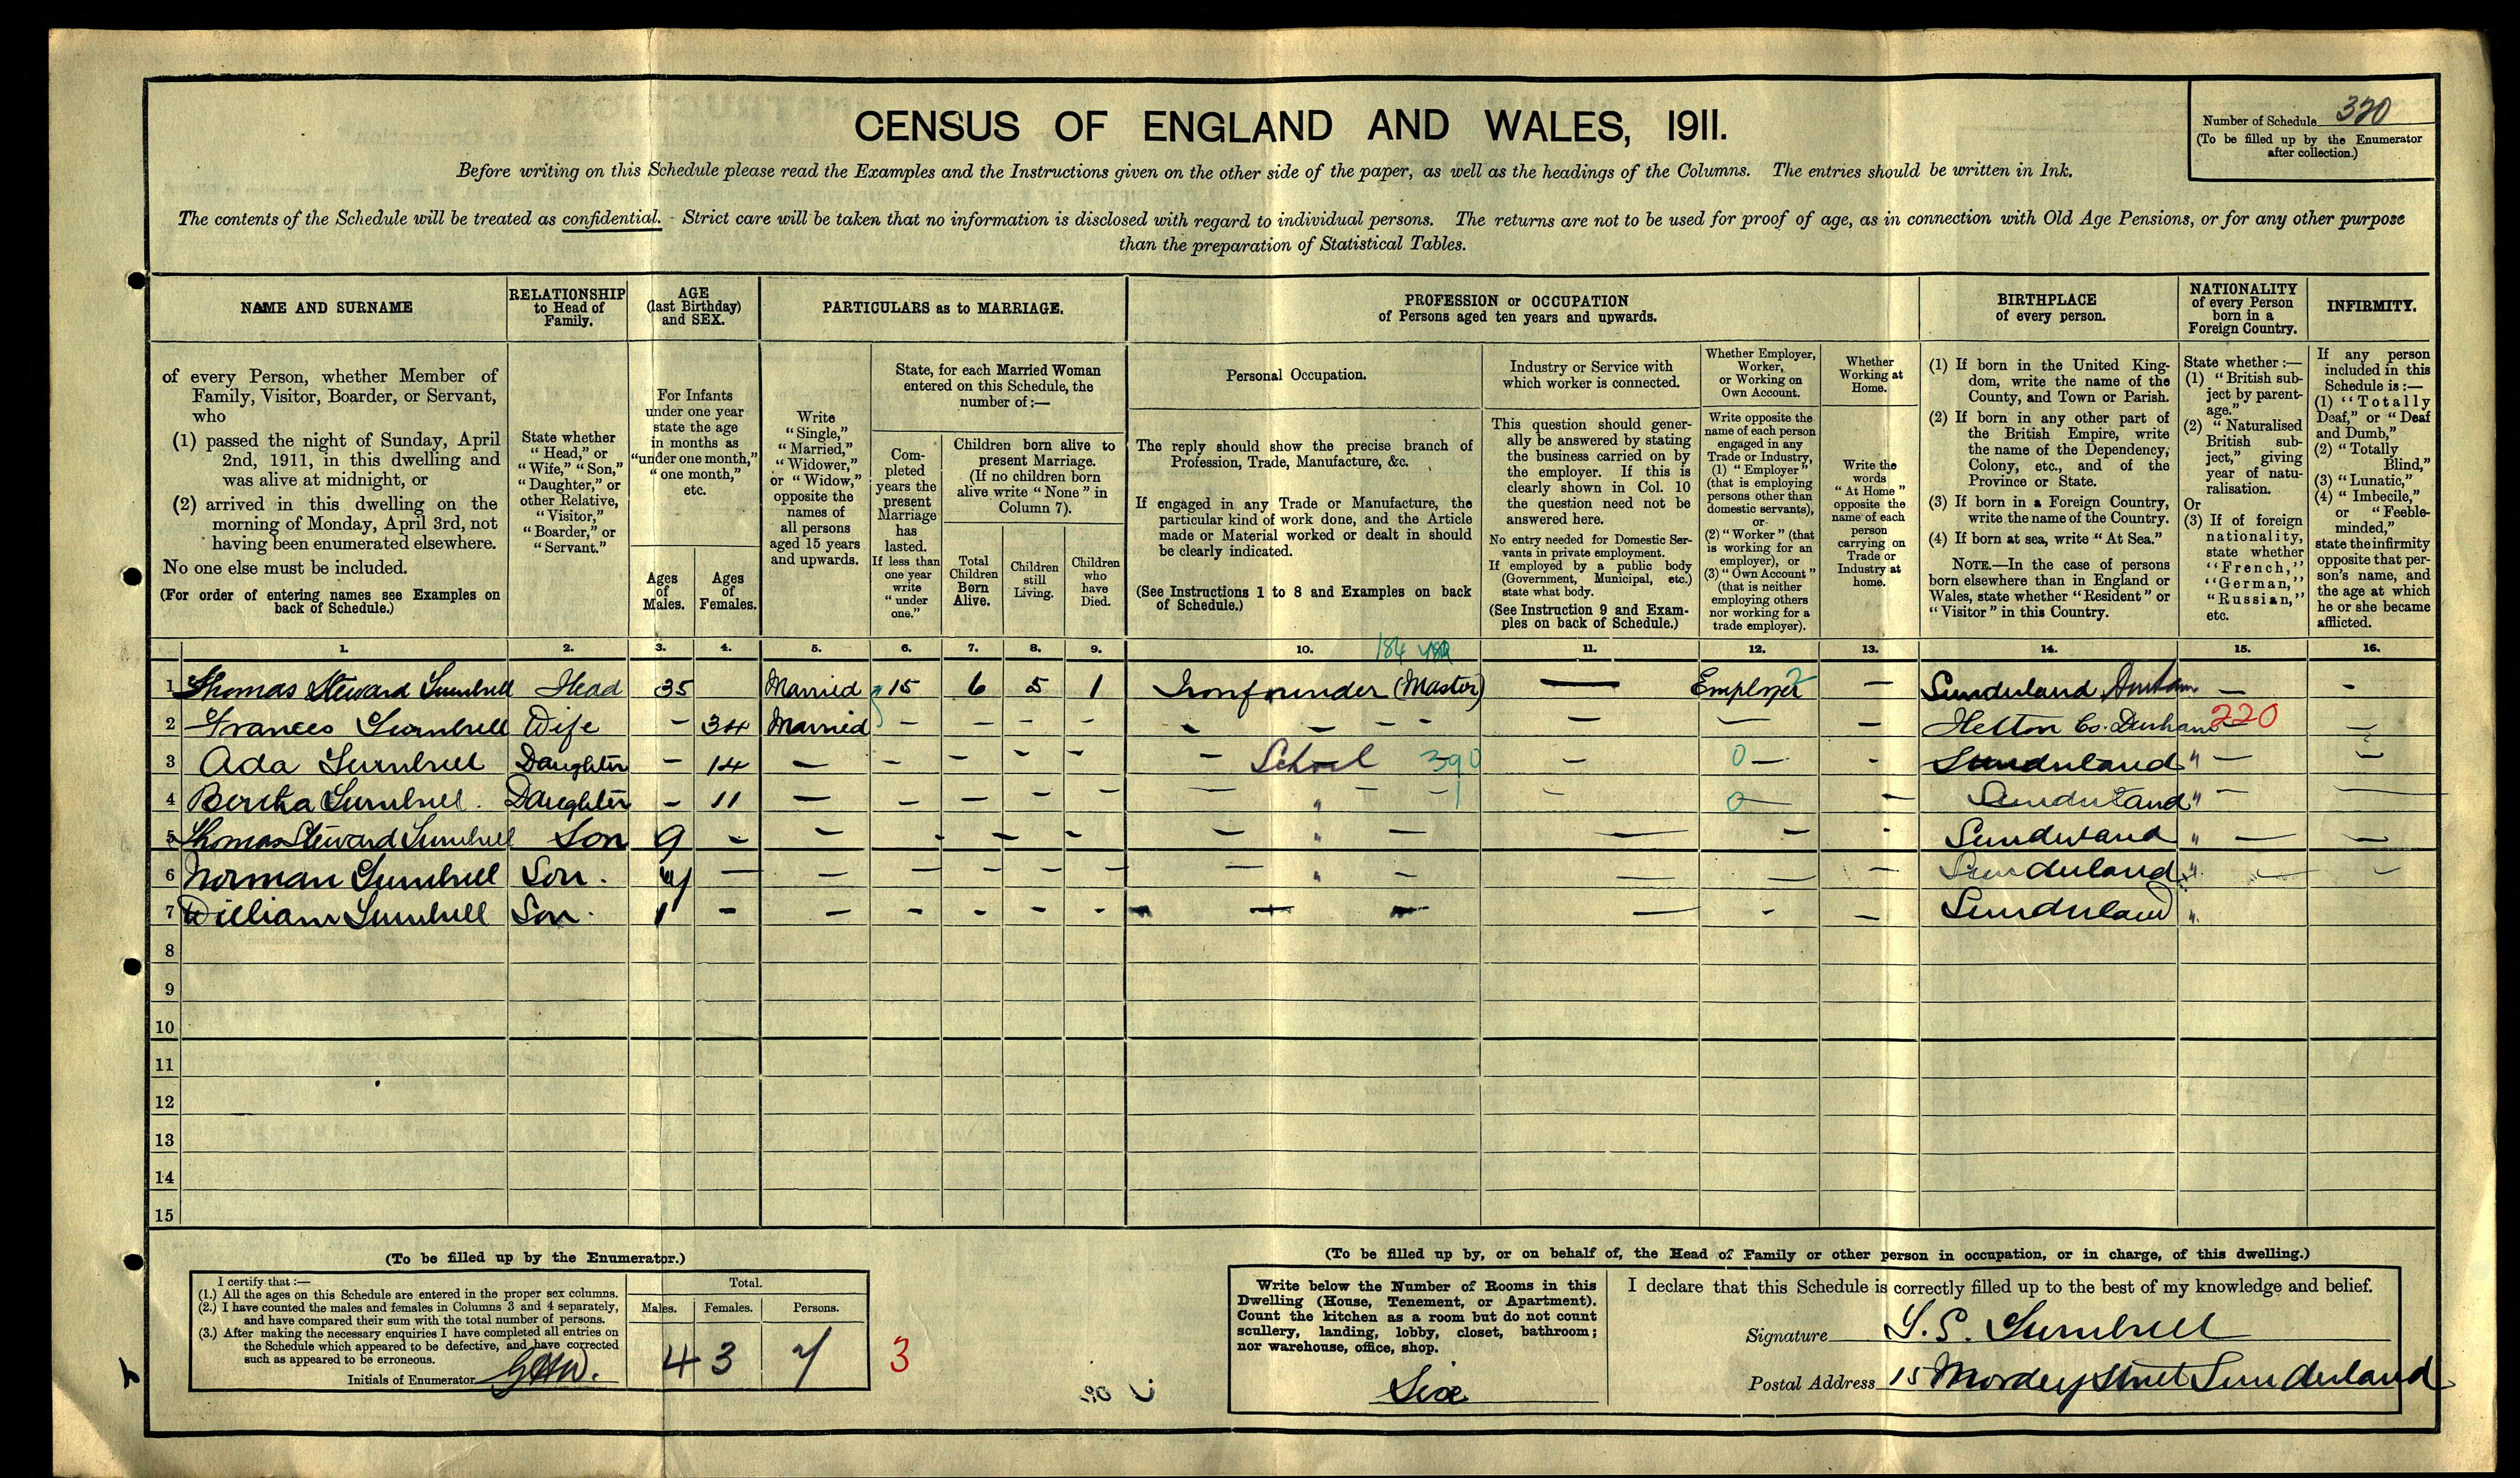 CENSUS OF ENGLAND AND WALES, 1911.
Number of Schedule 320
(To be filled up by the Enumerator
after collection.)
Before writing on this Schedule please read the Examples and the Instructions given on the other side of the paper, as well as the headings of the Columns. The entries should be written in Ink.
The contents of the Schedule will be treated as confidential. Strict care will be taken that no information is disclosed with regard to individual persons. The returns are not to be used for proof of age, as in connection with Old Age Pensions, or for any other purpose
than the preparation of Statistical Tables.
NAME AND SURNAME
of every Person, whether Member of
Family, Visitor, Boarder, or Servant,
who
(1) passed the night of Sunday, April
2nd, 1911, in this dwelling and
was alive at midnight, or
(2) arrived in this dwelling on the
morning of Monday, April 3rd, not
having been enumerated elsewhere.
No one else must be included.
(For order of entering names see Examples on
back of Schedule.)
RELATIONSHIP
to Head of
Family.
State whether
"Head," or
"Wife," "Son,"
"Daughter," or
other Relative,
"Visitor,"
"Boarder," or
"Servant."
AGE
(last Birthday)
and SEX.
For Infants
under one year
state the age
in months as
"under one month,"
"one month,"
etc.
Ages
of
Males.
Ages
of
Females.
PARTICULARS as to MARRIAGE.
Write
"Single,"
"Married,"
"Widower,"
or "Widow,"
opposite the
names of
all persons
aged 15 years
and upwards.
State, for each Married Woman
entered on this Schedule, the
number of :—
Com-
pleted
years the
present
Marriage
has
lasted.
If less than
one year
write
"under
one."
Children born alive to
present Marriage.
(If no children born
alive write "None" in
Column 7).
Total
Children
Born
Alive.
Children
still
Living.
Children
who
have
Died.
PROFESSION or OCCUPATION
of Persons aged ten years and upwards.
Personal Occupation.
The reply should show the precise branch of
Profession, Trade, Manufacture, &c.
If engaged in any Trade or Manufacture, the
particular kind of work done, and the Article
made or Material worked or dealt in should
be clearly indicated.
(See Instructions 1 to 8 and Examples on back
of Schedule.)
Industry or Service with
which worker is connected.
This question should gener-
ally be answered by stating
the business carried on by
the employer. If this is
clearly shown in Col. 10
the question need not be
answered here.
No entry needed for Domestic Ser-
vants in private employment.
If employed by a public body
(Government, Municipal, etc.)
state what body.
(See Instruction 9 and Exam-
ples on back of Schedule.)
Whether Employer,
Worker,
or Working on
Own Account.
Write opposite the
name of each person
engaged in any
Trade or Industry,
(1) "Employer"
(that is employing
persons other than
domestic servants),
or
(2) "Worker" (that
is working for an
employer), or
(3) "Own Account"
(that is neither
employing others
nor working for a
trade employer).
Whether
Working at
Home.
Write the
words
"At Home"
opposite the
name of each
person
carrying on
Trade or
Industry at
home.
BIRTHPLACE
of every person.
(1) If born in the United King-
dom, write the name of the
County, and Town or Parish.
(2) If born in any other part of
the British Empire, write
the name of the Dependency,
Colony, etc., and of the
Province or State.
(3) If born in a Foreign Country,
write the name of the Country.
(4) If born at sea, write "At Sea."
NOTE.—In the case of persons
born elsewhere than in England or
Wales, state whether "Resident" or
"Visitor" in this Country.
NATIONALITY
of every Person
born in a
Foreign Country.
State whether :—
(1) "British sub-
ject by parent-
age."
(2) "Naturalised
British sub-
ject," giving
year of natu-
ralisation.
Or
(3) If of foreign
nationality,
state whether
"French,"
"German,"
"Russian,"
etc.
INFIRMITY.
If any person
included in this
Schedule is :—
(1) "Totally
Deaf," or "Deaf
and Dumb,"
(2) "Totally
Blind,"
(3) "Lunatic,"
(4) "Imbecile,"
or "Feeble-
minded,"
state the infirmity
opposite that per-
son's name, and
the age at which
he or she became
afflicted.
1. 2. 3. 4. 5. 6. 7. 8. 9. 10. 11. 12. 13. 14. 15. 16.
184
1 Thomas Steward Turnbull Head 35 Married 15 6 5 1 Ironfounder (Master) — Employer 2 — Sunderland Durham — -
2 Frances Turnbull Wife - 34 Married - - - - - - - — — — Hetton Co. Durham 220 —
3 Ada Turnbull Daughter - 14 — - - - - - School 390 — 0 — - Sunderland " — —
4 Bertha Turnbull. Daughter - 11 — - - - - — " - - — 0 — - Sunderland " — —
5 Thomas Steward Turnbull Son 9 - — - - - - — " — — — - Sunderland " — —
6 Norman Turnbull Son. 4 — — - - - - — " — — — — Sunderland " — -
7 William Turnbull Son. 1 - — - - - - - — — — - — Sunderland "
8
9
10
11
12
13
14
15
(To be filled up by the Enumerator.)
I certify that :—
(1.) All the ages on this Schedule are entered in the proper sex columns.
(2.) I have counted the males and females in Columns 3 and 4 separately,
and have compared their sum with the total number of persons.
(3.) After making the necessary enquiries I have completed all entries on
the Schedule which appeared to be defective, and have corrected
such as appeared to be erroneous.
Initials of Enumerator
Total.
Males. Females. Persons.
4 3 7
3
(To be filled up by, or on behalf of, the Head of Family or other person in occupation, or in charge, of this dwelling.)
Write below the Number of Rooms in this
Dwelling (House, Tenement, or Apartment).
Count the kitchen as a room but do not count
scullery, landing, lobby, closet, bathroom;
nor warehouse, office, shop.
Six
I declare that this Schedule is correctly filled up to the best of my knowledge and belief.
Signature T. S. Turnbull
Postal Address 15 Mordey Street Sunderland